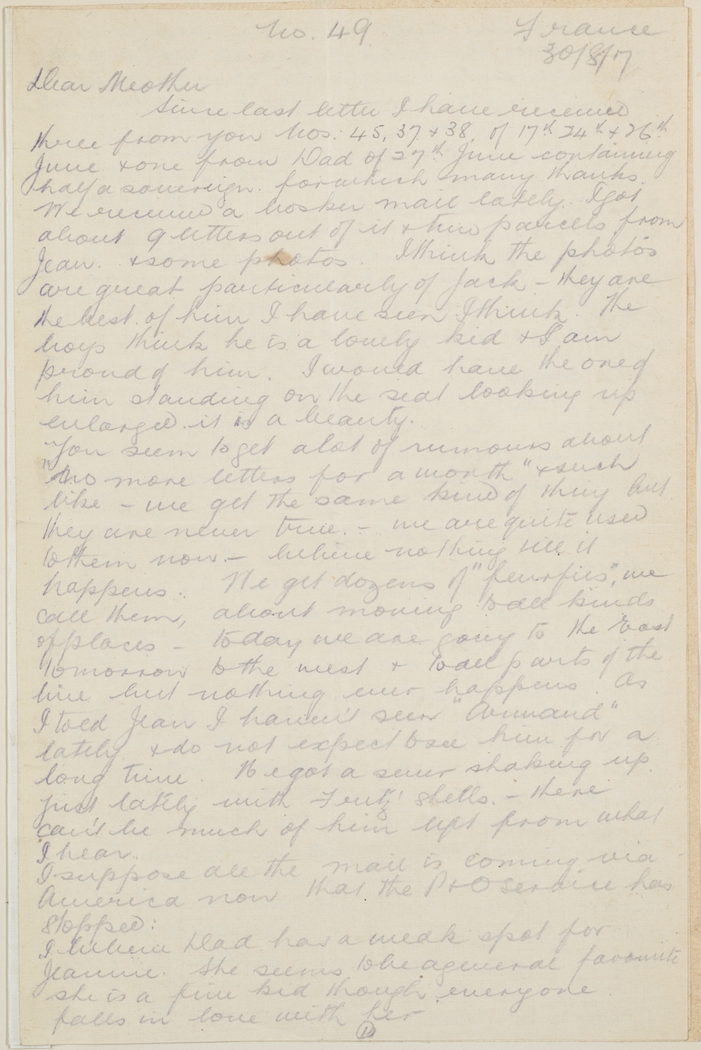 No. 49 France
30/8/17
Dear Meother
Since last letter I have received
three from you Nos. 45, 37 & 38, of 17th 24th & 26th
June & one from Dad of 27th June containing
half a sovereign. for which many thanks.
We received a bosker mail lately. I got
about 9 letters out of it & two parcels from
Jean. & some photos. I think the photos
are great particularly of Jack – they are
the best of him I have seen I think. The
boys think he is a lovely kid & I am
proud of him. I would have the one of
him standing on the seat looking up
enlarged. it is a beauty.
You seem to get a lot of rumours about
"no more letters for a month" & such
like – we get the same kind of thing but
they are never true. – we are quite used
to them now – believe nothing till it
happens. We get dozens of "feurfies", we
call them, about moving to all kinds
of places – today we are going to the East
tomorrow to the west & to all parts of the
line but nothing ever happens. As
I told Jean I haven't seen "Armand"
lately & do not expect to see him for a
long time. He got a sever shaking up
just lately with Fritz' shells. – there
can't be much of him left from what
I hear.
I suppose all the mail is coming via
America now that the P & O service has
stopped:
I believe Dad has a weak spot for
Jeannie. She seems to be a general favourite
she is a fine kid though. everyone
falls in love with her